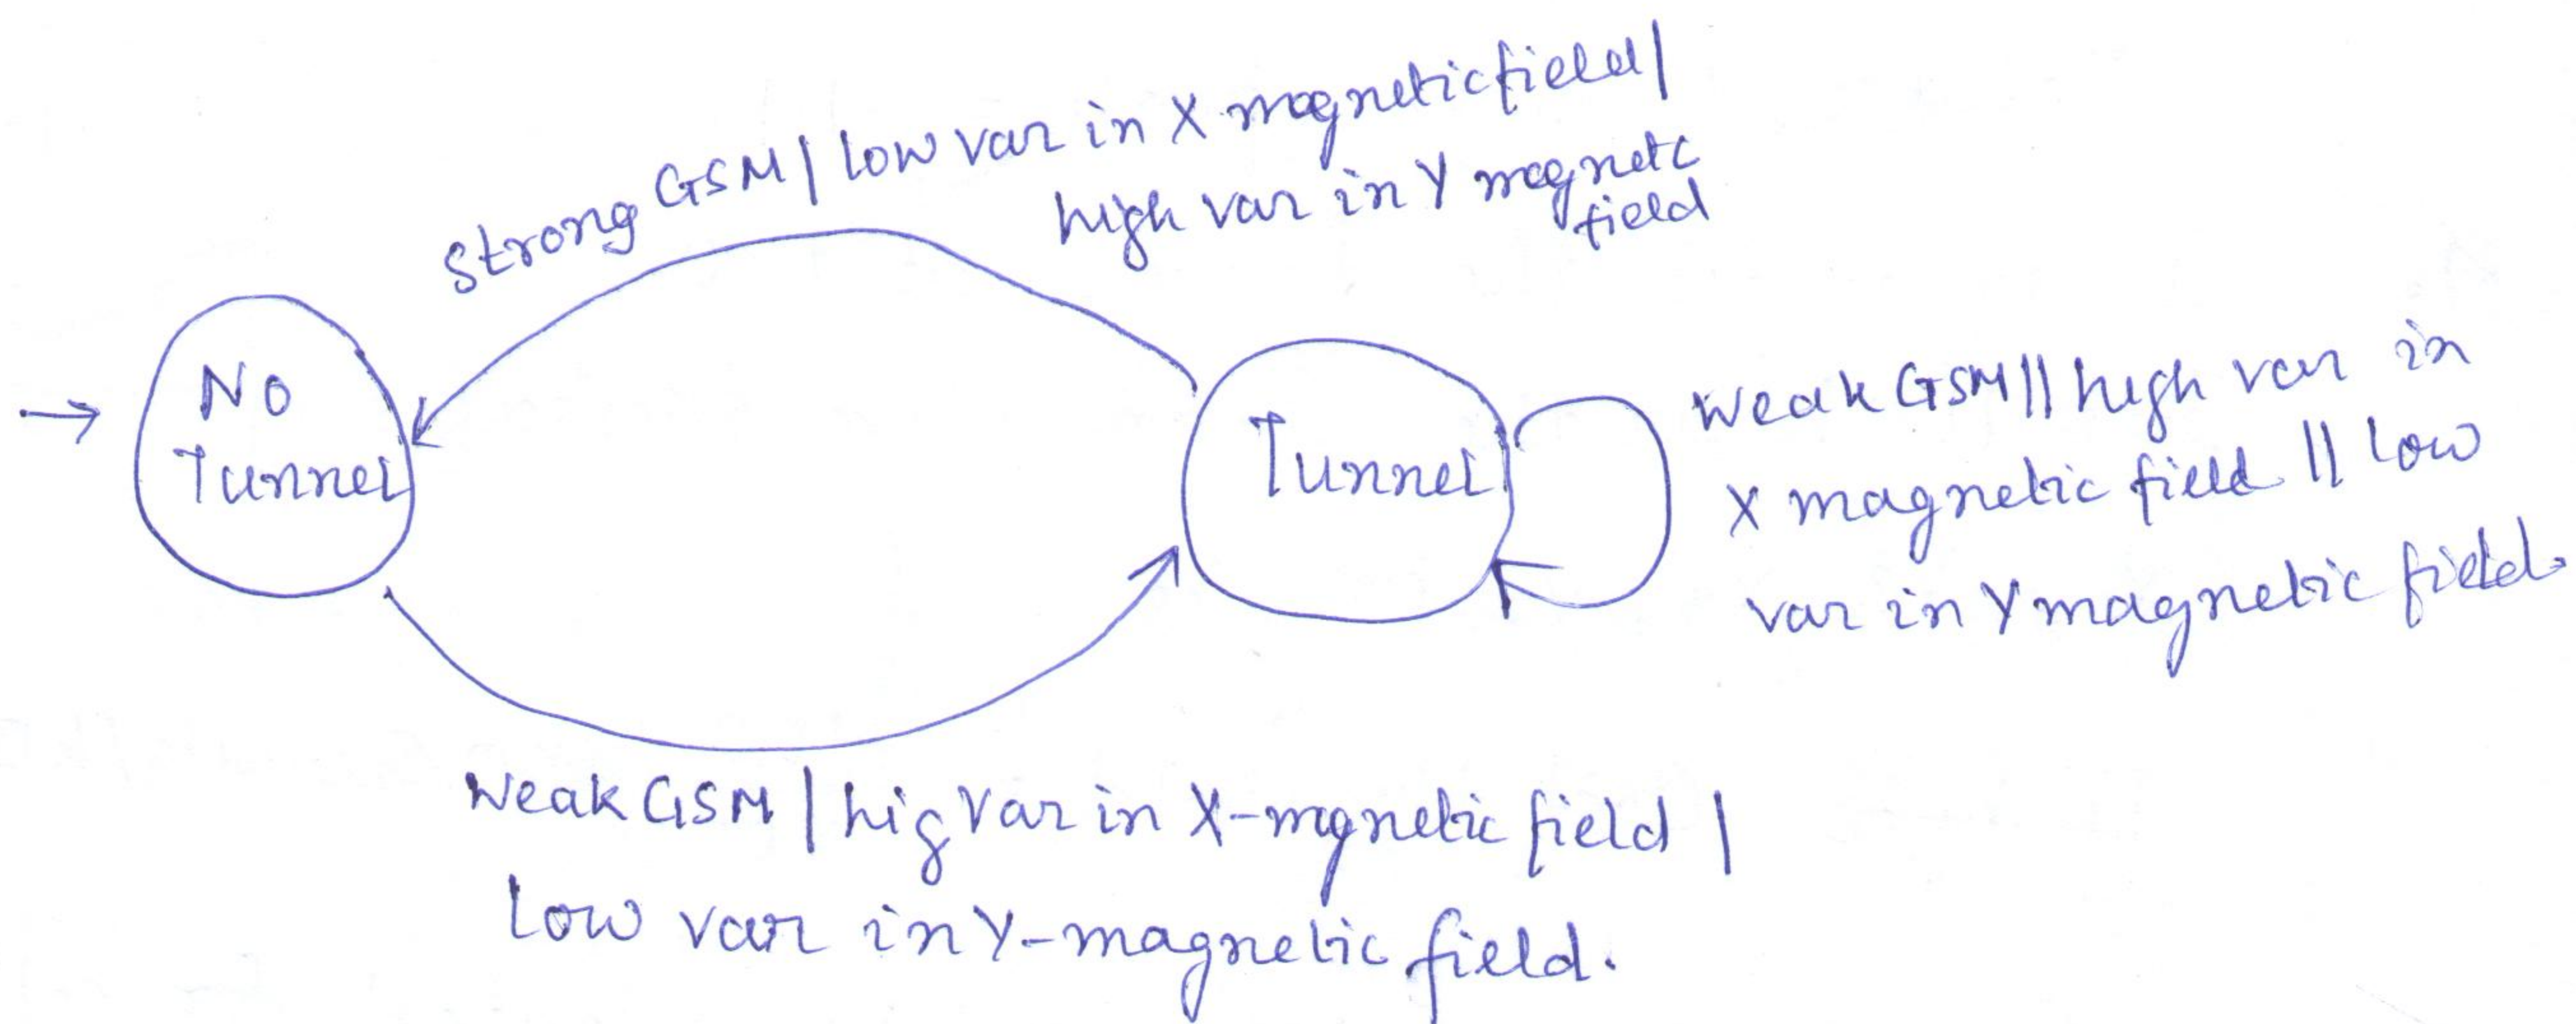 Strong GSM | low var in X magneticfield |
high var in Y magnetc
field
No
Tunnel
Tunnel
Weak GSM || high var in
X magnetic field || low
var in Y magnetic field.
Weak GSM | hig Var in X-mgnetic field |
low var in Y-magnetic field.